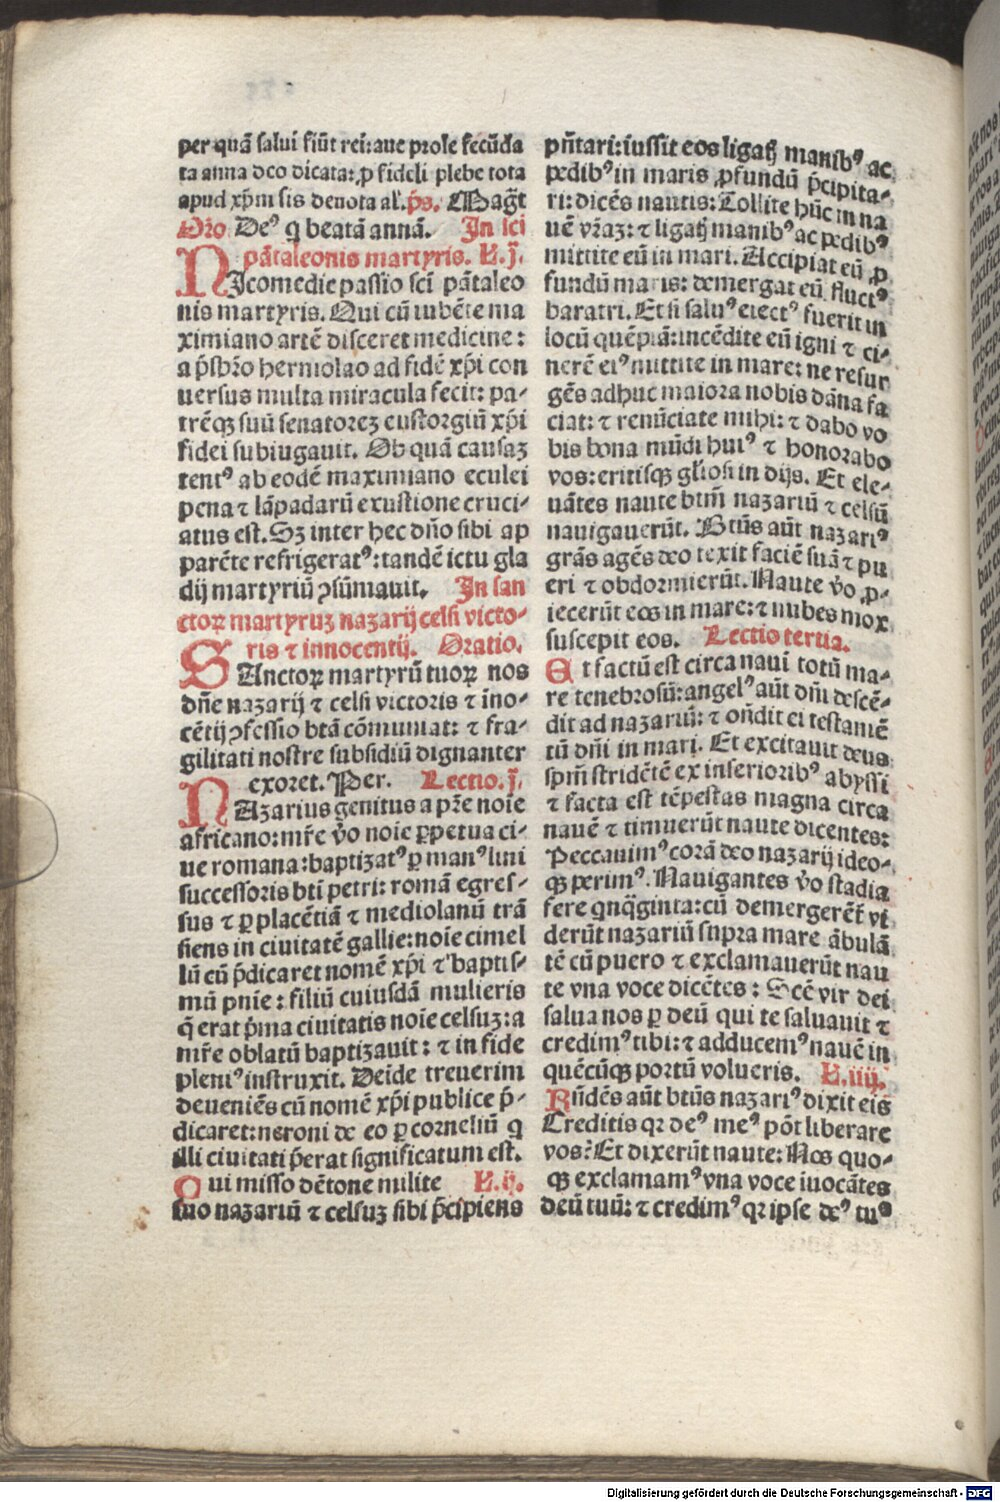 per quā salui fiūt rei: aue prole fecūda
ta anna deo dicata: ꝓ fideli plebe tota
apud xp̄m sis deuota al'. p̄s. Mag̅t
Or̄o De⁹ q̇ beatā annā. In sci
pātaleonis martyris. L. j̄.
NIcomedie passio scī pātaleo
nis martyris. Qui cū iubēte ma
ximiano artē disceret medicine:
a p̄sbr̄o hermolao ad fidē xp̄i con
uersus multa miracula fecit: pa-
trēqꝫ suū senatoreꝫ eustorgiū xp̄i
fidei subiugauit. Ob quā causaꝫ
tent⁹ ab eodē maximiano eculei
pena ⁊ lāpadarū exustione cruci-
atus est. Sꝫ inter hec dn̄o sibi ap
parēte refrigerat⁹: tandē ictu gla
dij martyriū ꝯsūmauit. In san
ctoꝝ martyruꝫ nazarij celsi victo-
ris ⁊ innocentij. Oratio.
SAnctoꝝ martyrū tuoꝝ nos
dn̄e nazarij ⁊ celsi victoris ⁊ īno-
cētij ꝯfessio btā cōmuniat: ⁊ fra-
gilitati nostre subsidiū dignanter
exoret. Per. Lectio. j̄.
NAzarius genitus a pr̄e noīe
africano: mr̄e v̊o noīe ꝑpetua ci-
ue romana: baptizat⁹ ꝑ man⁹ lini
successoris btī petri: romā egres-
sus ⁊ ꝑ placētiā ⁊ mediolanū trā
siens in ciuitatē gallie: noīe cimel
lū cū p̄dicaret nomē xp̄i ⁊ baptis-
mū pn̄ie: filiū cuiusdā mulieris
q̄ erat p̄ma ciuitatis noīe celsuꝫ: a
mr̄e oblatū baptizauit: ⁊ in fide
pleni⁹ instruxit. Deīde treuerim
deueniēs cū nomē xp̄i publice p̄-
dicaret: neroni de eo ꝑ corneliū q̇
illi ciuitati p̄erat significatum est.
Qui misso dētone milite L. ij.
suo nazariū ⁊ celsuꝫ sibi p̄cipiens
pn̄tari: iussit eos ligatꝭ manib⁹ ac
pedib⁹ in maris ꝓfundū p̄cipita-
ri: dicēs nautis: Tollite hūc in na
uē vr̄aꝫ: ⁊ ligatꝭ manib⁹ ac pedib⁹
mittite eū in mari. Accipiat eū ꝓ
fundū maris: demergat eū fluct⁹
baratri. Et si salu⁹ eiect⁹ fuerit in
locū quēpiā: incēdite eū igni ⁊ ci-
nerē ei⁹ mittite in mare: ne resur
gēs adhuc maiora nobis dāna fa
ciat: ⁊ renūciate mihi: ⁊ dabo vo
bis bona mūdi hui⁹ ⁊ honorabo
vos: eritisqꝫ gl̄iosi in dijs. Et ele-
uātes naute btm̄ nazariū ⁊ celsū
nauigauerūt. Btūs aūt nazari⁹
grās agēs deo texit faciē suā ⁊ pu
eri ⁊ obdormierūt. Naute v̊o ꝓ-
iecerūt eos in mare: ⁊ nubes mox
suscepit eos. Lectio tertia.
Et factū est circa naui totū ma-
re tenebrosū: angel⁹ aūt dn̄i descē-
dit ad nazariū: ⁊ on̄dit ei testamē
tū dn̄i in mari. Et excitauit deus
spm̄ stridētē ex inferiorib⁹ abyssi
⁊ facta est tēpestas magna circa
nauē ⁊ timuerūt naute dicentes:
Peccauim⁹ corā deo nazarij ideo-
qꝫ perim⁹. Nauigantes v̊o stadia
fere qnq̄ginta: cū demergerēt̄ vi
derūt nazariū supra mare ābulā
tē cū puero ⁊ exclamauerūt nau
te vna voce dicētes: Scē vir dei
salua nos ꝑ deū qui te saluauit ⁊
credim⁹ tibi: ⁊ adducem⁹ nauē in
quēcūqꝫ portū volueris. L. iiij.
Rn̄dēs aūt btūs nazari⁹ dixit eis
Creditis qꝛ de⁹ me⁹ pōt liberare
vos? Et dixerūt naute: Nos quo-
qꝫ exclamam⁹ vna voce iuocātes
deū tuū: ⁊ credim⁹ qꝛ ipse de⁹ tu⁹
Digitalisierung gefördert durch die Deutsche Forschungsgemeinschaft - DFG